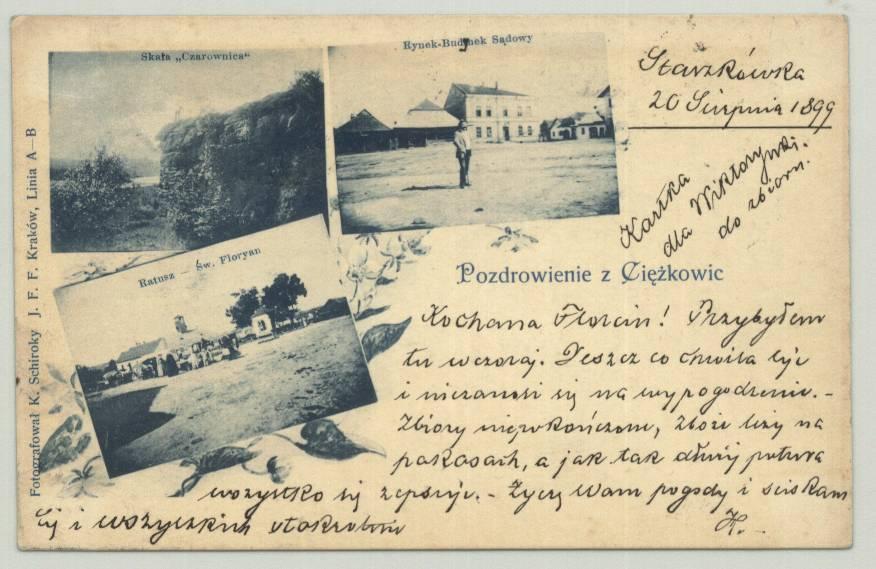 Skała „Czarownica"
Rynek-Budynek Sądowy
Ratusz Św. Floryan
Fotografował K. Schiroky J. F. F. Kraków, Linia A—B
Pozdrowienie z Ciężkowic
Staszkówka
20 Sierpnia 1899
Kartka
dla Wiktoryni.
do zbioru.
Kochana Florciu! Przybyłem
tu wczoraj. Deszcz co chwila lije
i niezanosi się na wypogodzenie.-
Zbiory nieukończone, zboże leży na
pokosach, a jak tak dłużej potrwa
wszystko się zepsuje.- Życzę Wam pogody i ściskam
Cię i wszystkich stokrotnie
K.-